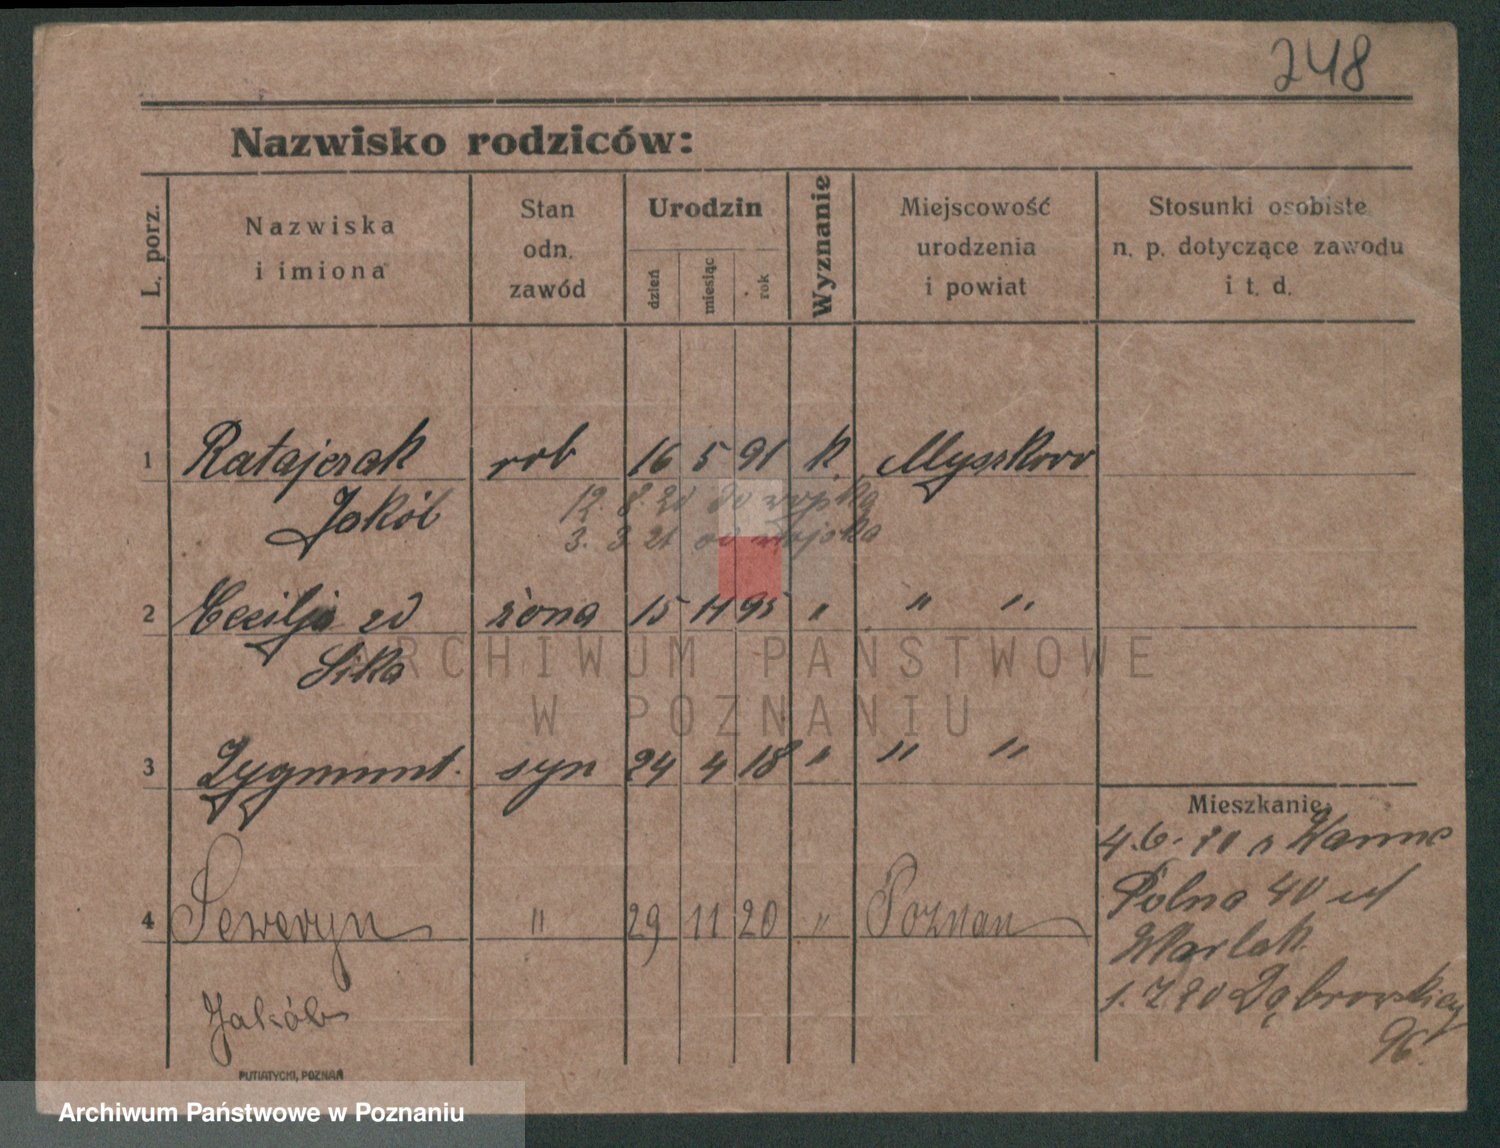 248
Nazwisko rodziców:
L. porz.
Nazwiska
i imiona
Stan
odn.
zawód
Urodzin
dzień
miesiąc
rok
Wyznanie
Miejscowość
urodzenia
i powiat
Stosunki osobiste
n. p. dotyczące zawodu
i t. d.
1 Ratajczak rob 16 5 91 k. Myszkowo
12. 8. 20 do wojska
Jakób
3. 3 21 od wojska
2 Cecilja zd żona 15 11 95 " " "
Sika
ARCHIWUM PAŃSTWOWE
W POZNANIU
3 Zygmunt. syn 24 4 18 " " "
Mieszkanie
4.6.20 z
Polna 40 u
4 Seweryn " 29 11 20 " Poznan
1.7 20 Dąbrowskiego
Jakób
96.
PUTIATYCKI, POZNAŃ
Archiwum Państwowe w Poznaniu